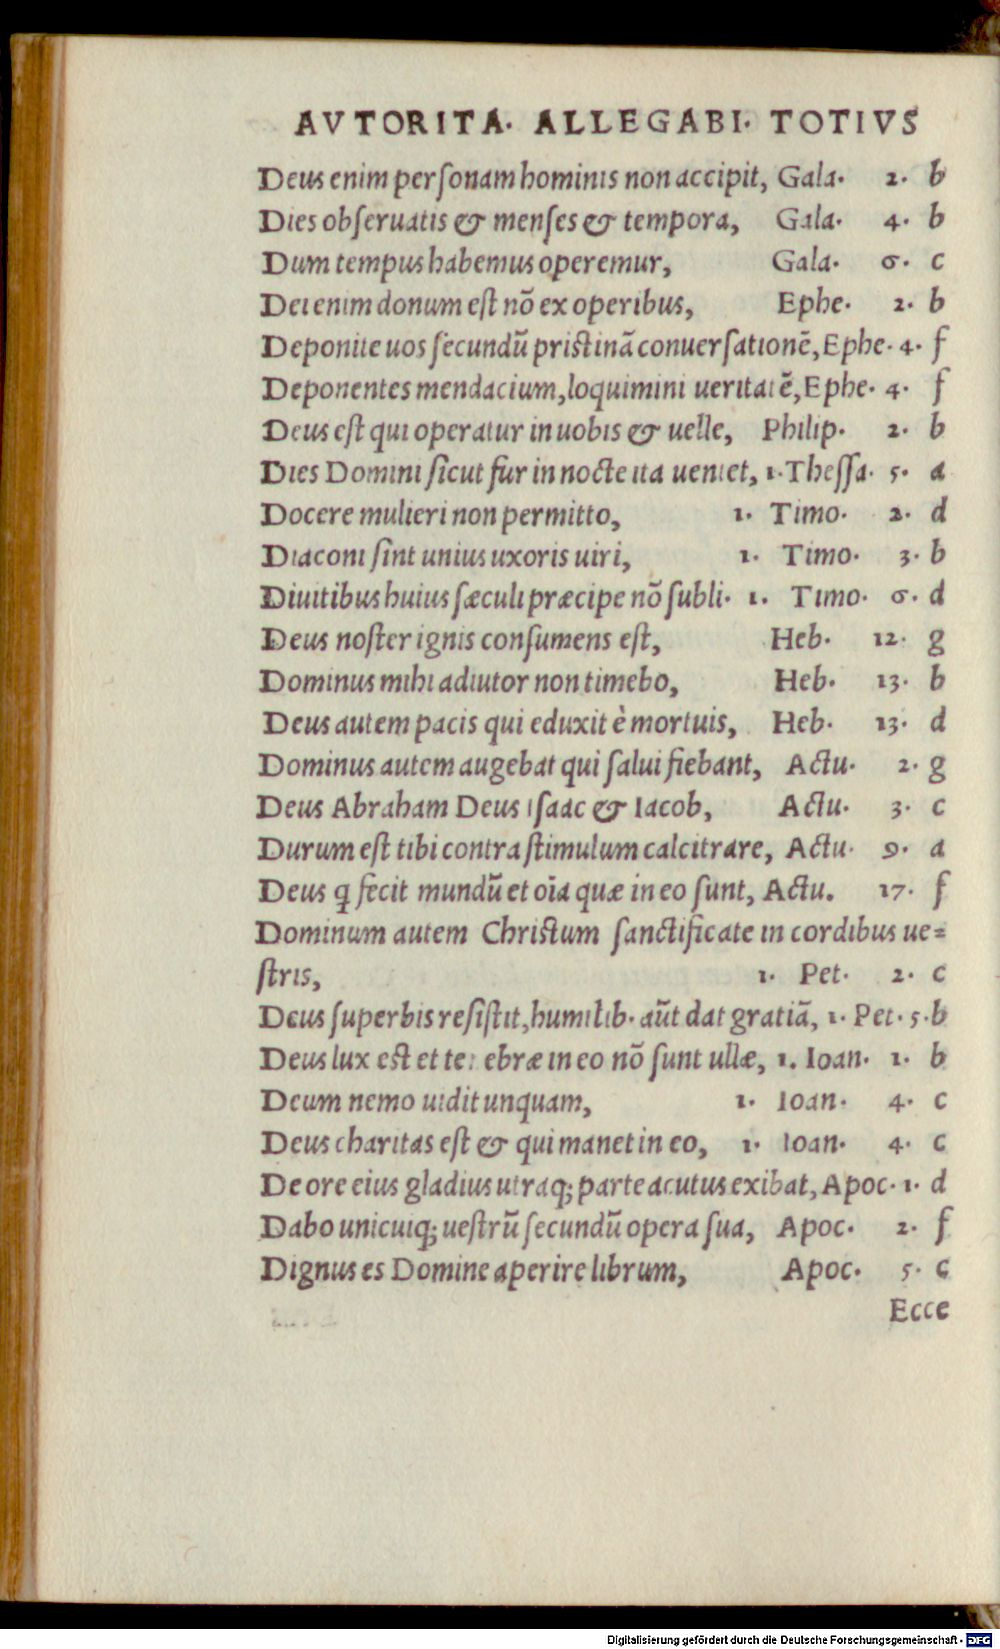 AVTORITA. ALLEGABI. TOTIVS
Deus enim perſonam hominis non accipit, Gala. 2. b
Dies obſeruatis & menſes & tempora, Gala. 4. b
Dum tempus habemus operemur, Gala. 6. c
Dei enim donum eſt nõ ex operibus, Ephe. 2. b
Deponite uos ſecundũ priſtinã conuerſationẽ, Ephe. 4. f
Deponentes mendacium, loquimini ueritatẽ, Ephe. 4. f
Deus eſt qui operatur in uobis & uelle, Philip. 2. b
Dies Domini ſicut fur in nocte ita ueniet, 1. Theſſa. 5. a
Docere mulieri non permitto, 1. Timo. 2. d
Diaconi ſint unius uxoris uiri, 1. Timo. 3. b
Diuitibus huius ſæculi præcipe nõ ſubli. 1. Timo. 6. d
Deus noſter ignis conſumens eſt, Heb. 12. g
Dominus mihi adiutor non timebo, Heb. 13. b
Deus autem pacis qui eduxit è mortuis, Heb. 13. d
Dominus autem augebat qui ſalui fiebant, Actu. 2. g
Deus Abraham Deus Iſaac & Iacob, Actu. 3. c
Durum eſt tibi contra ſtimulum calcitrare, Actu. 9. a
Deus q̃ fecit mundũ et oĩa quæ in eo ſunt, Actu. 17. f
Dominum autem Chriſtum ſanctificate in cordibus ue=
ſtris, 1. Pet. 2. c
Deus ſuperbis reſiſtit, humilib. aũt dat gratiã, 1. Pet. 5. b
Deus lux eſt et tenebræ in eo nõ ſunt ullæ, 1. Ioan. 1. b
Deum nemo uidit unquam, 1. Ioan. 4. c
Deus charitas eſt & qui manet in eo, 1. Ioan. 4. c
De ore eius gladius utraq; parte acutus exibat, Apoc. 1. d
Dabo unicuiq; ueſtrũ ſecundũ opera ſua, Apoc. 2. f
Dignus es Domine aperire librum, Apoc. 5. c
Ecce
Digitalisierung gefördert durch die Deutsche Forschungsgemeinschaft - DFG